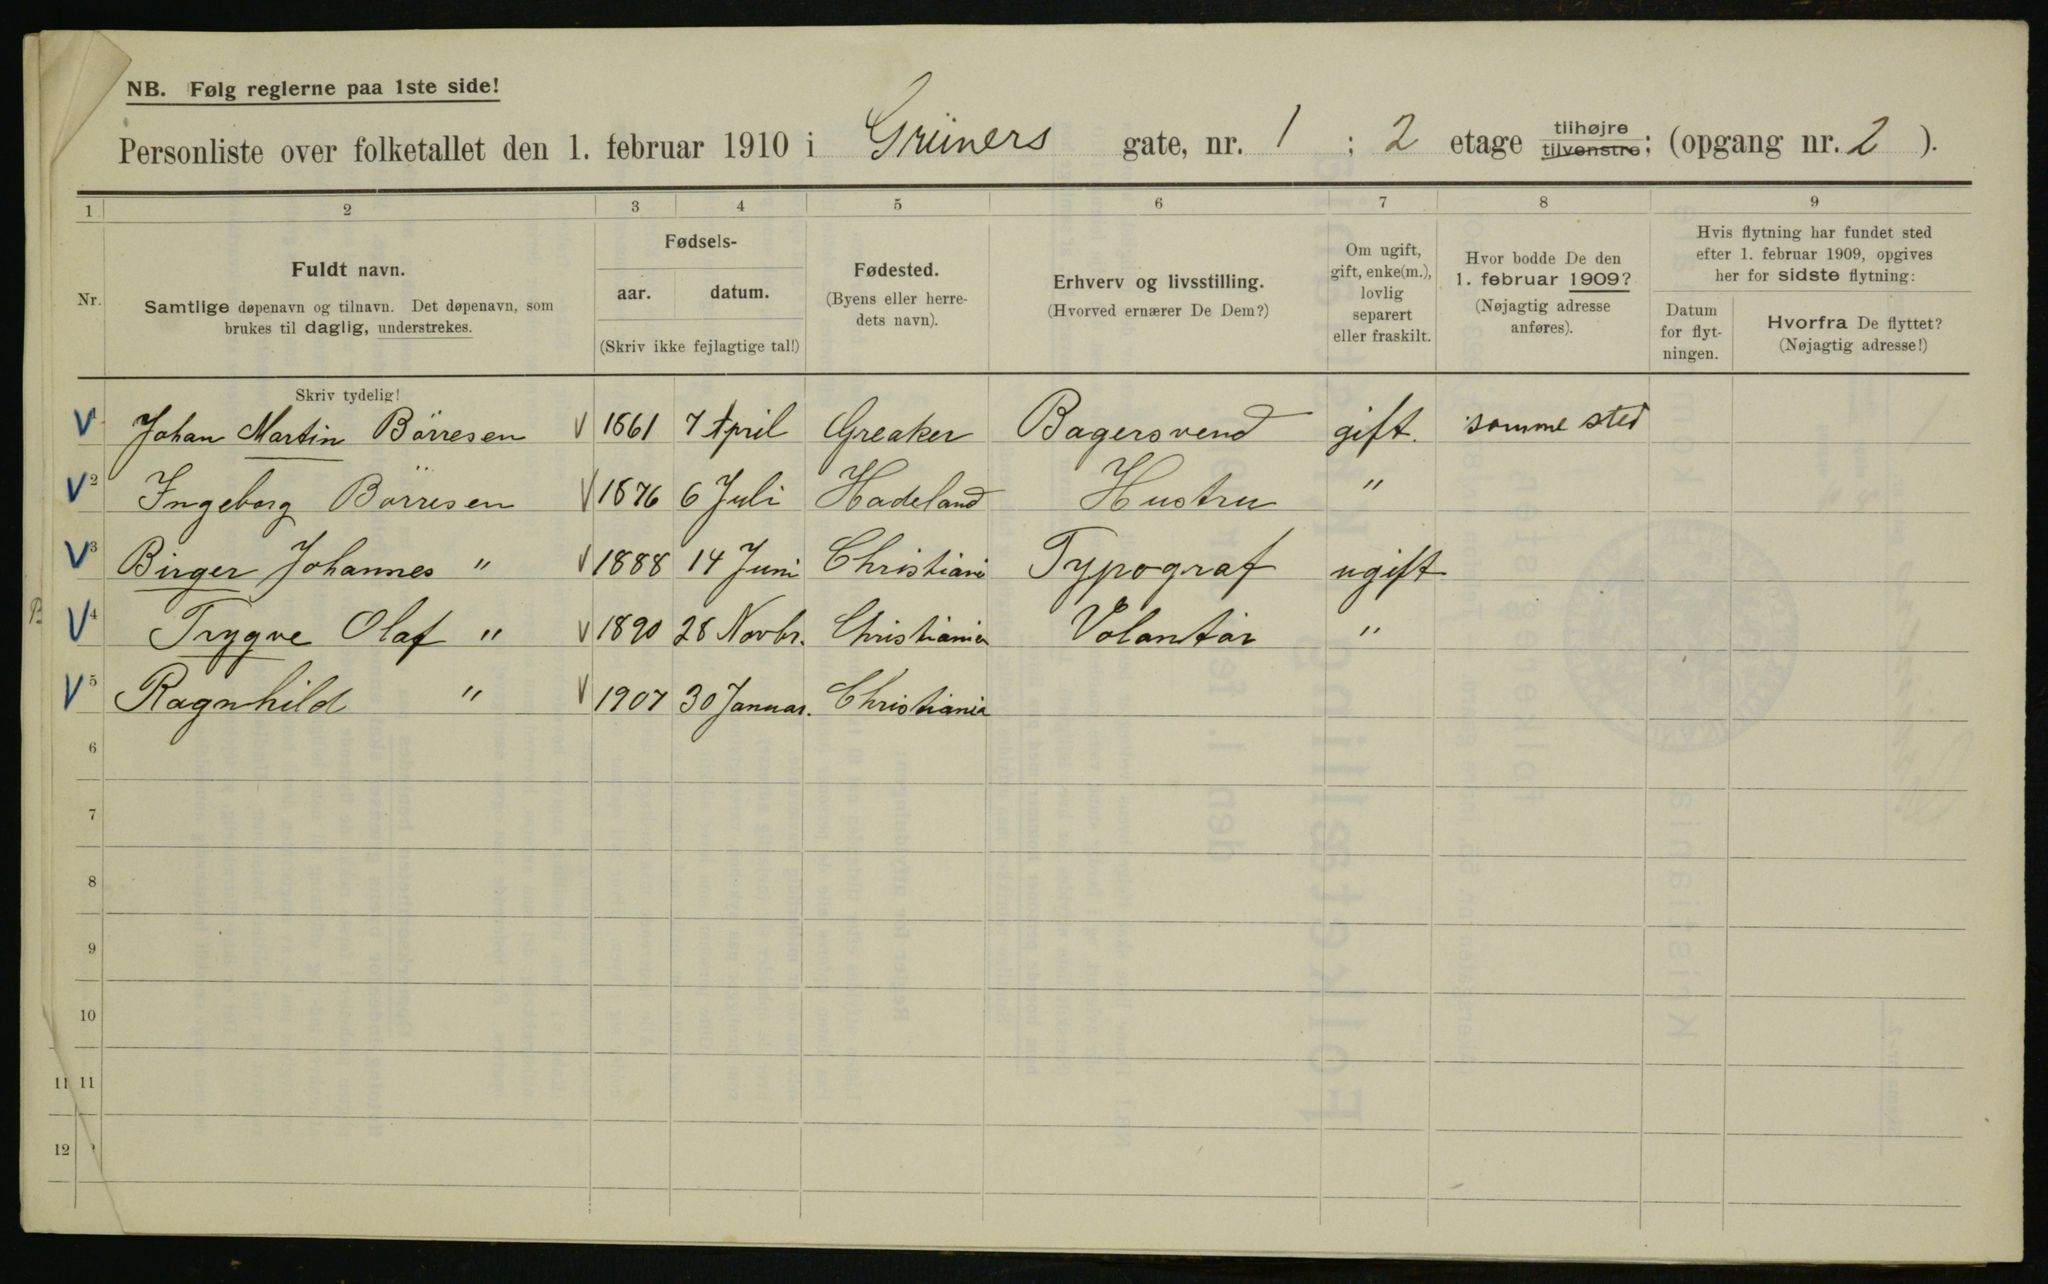 NB. Følg reglerne paa 1ste side!
Personliste over folketallet den 1. februar 1910 i Grüners gate, nr. 1 ; 2 etage tilhøjre tilvenstre; (opgang nr. 2 ).
1 2 3 4 5 6 7 8 9
Nr.
Fuldt navn.
Samtlige døpenavn og tilnavn. Det døpenavn, som
brukes til daglig, understrekes.
Fødsels-
aar. datum.
(Skriv ikke fejlagtige tal!)
Fødested.
(Byens eller herre-
dets navn).
Erhverv og livsstilling.
(Hvorved ernærer De Dem?)
Om ugift,
gift, enke(m.),
lovlig
separert
eller fraskilt.
Hvor bodde De den
1. februar 1909?
(Nøjagtig adresse
anføres).
Hvis flytning har fundet sted
efter 1. februar 1909, opgives
her for sidste flytning:
Datum
for flyt-
ningen.
Hvorfra De flyttet?
(Nøjagtig adresse!)
Skriv tydelig!
V 1 Johan Martin Börresen V 1861 7 April Greaker Bagersvend gift. samme sted
V 2 Ingeborg Börresen V 1876 6 Juli Hadeland Hustru "
V 3 Birger Johannes " V 1888 14 Juni Christiania Typograf ugift
V 4 Trygve Olaf " V 1890 28 Novbr. Christiania Volantör "
V 5 Ragnhild " V 1907 30 Januar. Christiania
6
7
8
9
10
11 11
12